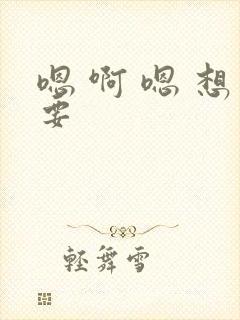 嗯啊嗯想
要
轻舞雪